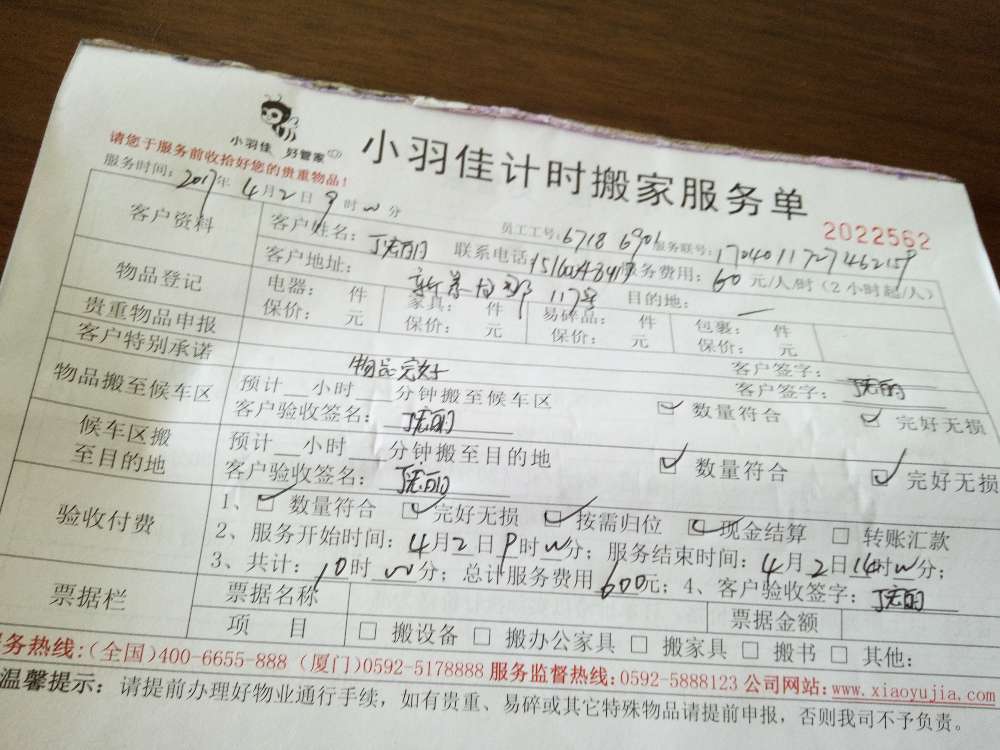 小羽佳 好管家
小羽佳计时搬家服务单
请您于服务前收拾好您的贵重物品！
2022562
服务时间：2017年4月2日9时00分 员工工号：6718 6906 服务联号：
客户资料 客户姓名： 联系电话 服务费用：60元/人/时（2小时起/人）
客户地址： 117号 目的地：
物品登记 电器： 件 家具： 件 易碎品： 件 包裹： 件
保价： 元 保价： 元 保价： 元 保价： 元
贵重物品申报 客户签字：
客户特别承诺 物品完好 客户签字：
物品搬至候车区 预计 小时 分钟搬至候车区 ☑ 数量符合 ☑ 完好无损
客户验收签名：
候车区搬至目的地 预计 小时 分钟搬至目的地 ☑ 数量符合 ☑ 完好无损
客户验收签名：
验收付费 1、☑ 数量符合 ☑ 完好无损 ☑ 按需归位 ☑ 现金结算 □ 转账汇款
2、服务开始时间：4月2日9时00分；服务结束时间：4月2日14时00分；
3、共计：10时00分；总计服务费用600元；4、客户验收签字：
票据栏 票据名称 票据金额
项 目 □ 搬设备 □ 搬办公家具 □ 搬家具 □ 搬书 □ 其他：
务热线：（全国）400-6655-888（厦门）0592-5178888 服务监督热线：0592-5888123 公司网站：www.xiaoyujia.com
温馨提示：请提前办理好物业通行手续，如有贵重、易碎或其它特殊物品请提前申报，否则我司不予负责。